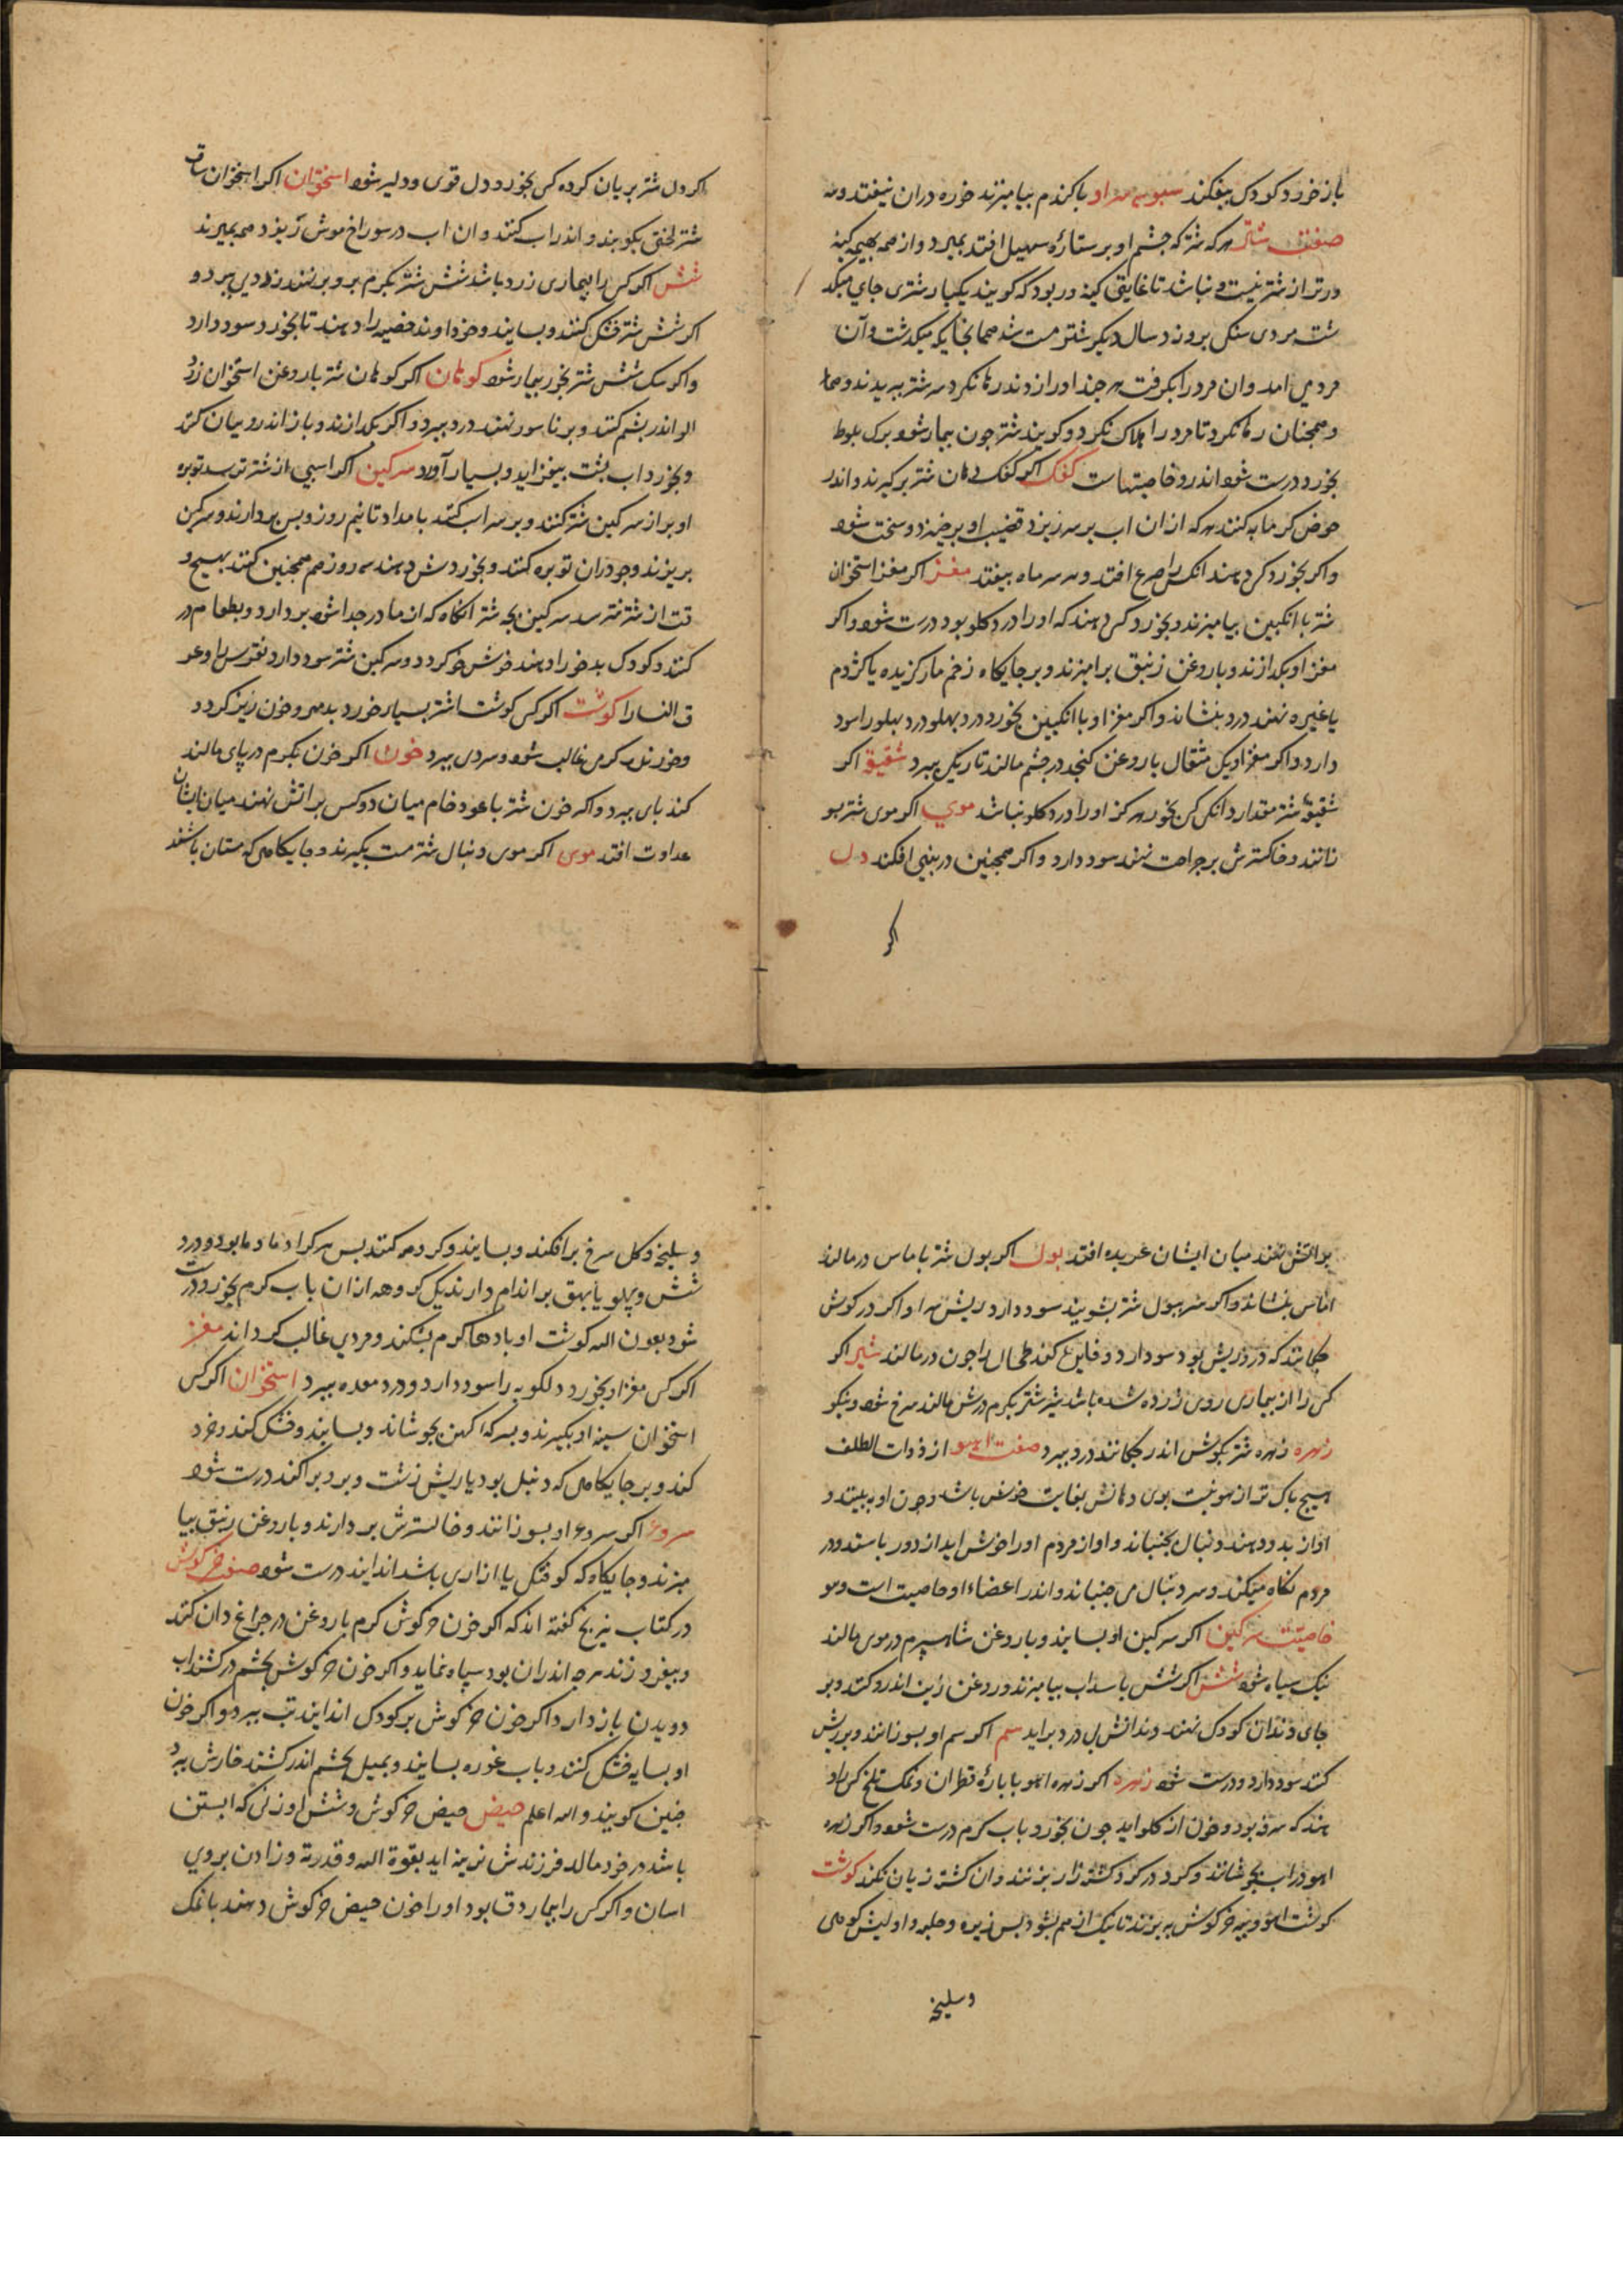 باز خورد کودک بیفکند سبوسه سر او با کندم بیامیزند خوره دران نیفتد و
صفت شتر هرکه شتر که چشم او بر ستارهٔ سهیل افتد بمیرد و از همه بهیمه کینه
ورتر از شتر نیست و نباشد تا غایتی کینه ور بود که کویند یکبار شتری جای میکذ
شت مردی سنکی برو زد سال دیکر شتر مست شد همانجایکه میکذشت و آن
مردمی امد وان مرد را بکرفت هرچند اورا زدند رها نکرد سر شتر ببریدند و
وهمچنان رها نکرد تا مرد را هلاک نکرد و کویند شتر چون بیمار شود برک بلوط
بخورد درست شود اندرو خاصیتهاست کفک اکر کفک دهان شتر برکیرند و اندر
حوض کرمابه کنند هرکه ازان اب بر سر ریزد قضیب او برخیزد و سخت شود
واکر بخورد کسی دهند انکس را صرع افتد و سر ماه بیفتد مغز اکر مغز استخوان
شتر با انکبین بیامیزند و بخورد کسی دهند که اورا درد کلو بود درست شود واکر
مغز او بکدازند و با روغن زنبق برامیزند و بر جایکاه زخم مار کزیده یا کژدم
یا غیره نهند درد بنشاند واکر مغز او با انکبین بخورد درد پهلو درد پهلو را سود
دارد واکر مغز او یک مثقال با روغن کنجد در چشم مالند تاریکی ببرد شقیق اکر
شقیق شتر مقدار دانکی کسی بخورد هرکز اورا درد کلو نباشد موی اکر موی شتر بسو
زانند و خاکسترش بر جراحت نهند سود دارد واکر همچنین در بینی افکند دل
اکر
اکر دل شتر بریان کرده کسی بخورد دل قوی و دلیر شود استخوان اکر استخوان ساق
شتر لختی بکوبند و اندر اب کنند و ان اب در سوراخ موش ریزد همه بمیرند
شش اکر کسی را بیماری زرد باشد شش شتر بکرم برو بر نهند زردی ببرد و
اکر شش شتر خشک کنند و بسایند و خداوند خصیه را دهند تا بخورد سود دارد
واکر سک شش شتر بخورد بیمار شود کوهان اکر کوهان شتر با روغن استخوان زرد
الو اندر پشم کنند و بر ناسور نهند درد ببرد واکر بکدازند و باز اندرو بیان کند
وبخورد اب پشت بیفزاید و بسیار آورد سرکین اکر اسپی از شتر ترسد توبره
او بر از سرکین شتر کنند و بر سر اب کنند بامداد تا نیم روز و پس بردارند و سرکین
بریزند و جو دران توبره کنند و بخوردش دهند سه روز هم همچنین کنند بهیچ و
قت از شتر نترسد سرکین بچه شتر انکاه که از مادر جدا شود بردارد و بطعام در
کنند و کودک بدخو را دهند خوش خو کردد و سرکین شتر سود دارد نقرس را و عر
ق النسا را کوشت اکر کسی کوشت اشتر بسیار خورد بدمهر و خون ریز کردد
وخوردنش کرمی غالب شود و سردی ببرد خون اکر خون بکرم در پای مالند
کند پای ببرد واکر خون شتر با عود خام میان دو کس بر اتش نهند میان ایشان
عداوت افتد موی اکر موی دنبال شتر مست بکیرند و جایکاهی که مستان باشند
بر اتش نهند میان ایشان عربده افتد بول اکر بول شتر با ماس در مالند
اماس بنشاند واکر سر ببول شتر بشویند سود دارد ریش سر او اکر در کوش
چکانند که درو ریش بود سود دارد و فایق کند طحال را چون در مالند شیر اکر
کسی را از بیماری روی زرده شده باشد شیر شتر بکرم درش مالند سرخ شود و نیکو
زهره زهره شتر بکوش اندر چکانند درد ببرد صفت اهو از ذوات الظلف
هیچ پاک تر از اهو نیست بوی دهانش بغایت خوش باشد و چون او به بیشد و
اواز بدو دهند دنبال بجنباند و اواز مردم اورا خوش اید از دور باستد و در
مردم نکاه میکند و سر دنبال می جنباند و اندر اعضاء او خاصیت است و
خاصیت سرکین اکر سرکین او بسایند و با روغن شاهسپرم در موی مالند
نیک سیاه شود شش اکر شش با سداب بیامیزند و روغن زیت اندرو کنند و بر
جای دندان کودک نهند دندانش بی درد براید سم اکر سم او بسوزانند و بر ریش
کنند سود دارد و درست شود زهره اکر زهره اهو با پارهٔ قطران و نمک تلخ کسی را د
هند که سرفه بود و خون از کلو اید چون بخورد با اب کرم درست شود واکر زهره
اهو در اب بجوشانند و کرد در کرد کشته زار بزنند و ان کشته زیان نکند کوشت
کوشت اهو و پیه خرکوش به پزند تا نیک از هم بشود پس زیره و حلبه و اولیش کوهی
و سلیخه
و سلیخه و کل سرخ برافکند و بسایند و کرد کنند پس هرکرا دمادم بود و درد
شش و پهلو یا بهق بر اندام دارند یکی کروهه ازان با اب کرم بخورد درست
شود بعون الله کوشت او بادهاء کرم بشکند و مردی غالب کرداند مغز
اکر کسی مغز او بخورد دلکوبه را سود دارد و درد معده ببرد استخوان اکر کسی
استخوان سینه او بکیرند و بسرکه کهن بجوشاند و بسایند و خشک کند و خرد
کند و بر جایکاهی که دنبل بود یا ریش زشت و برد براکند درست شود
سروع اکر سروع او بسوزانند و خاکسترش بردارند و با روغن زنبق بیا
میزند و جایکاه که کوفتکی یا ازاری باشد اندایند درست شود صفت خرکوش
در کتاب نیریخ کفته اند که اکر خون خرکوش کرم با روغن در چراغ دان کنند
و بیفروزند هرچه اندران بود سیاه نماید واکر خون خرکوش بچشم درکشند اب
دویدن باز دارد واکر خون خرکوش بر کودک اندایند تب ببرد واکر خون
او بسایه خشک کنند و باب غوره بسایند و بمیل بچشم اندر کشند خارش ببرد
چنین کویند والله اعلم حیض حیض خرکوش و شش او زنی که ابستن
باشد در خود مالد فرزندش نرینه اید بقوة الله و قدرته و زادن بروی
اسان واکر کسی را بیمار دق بود اورا خون حیض خرکوش دهند با نمک